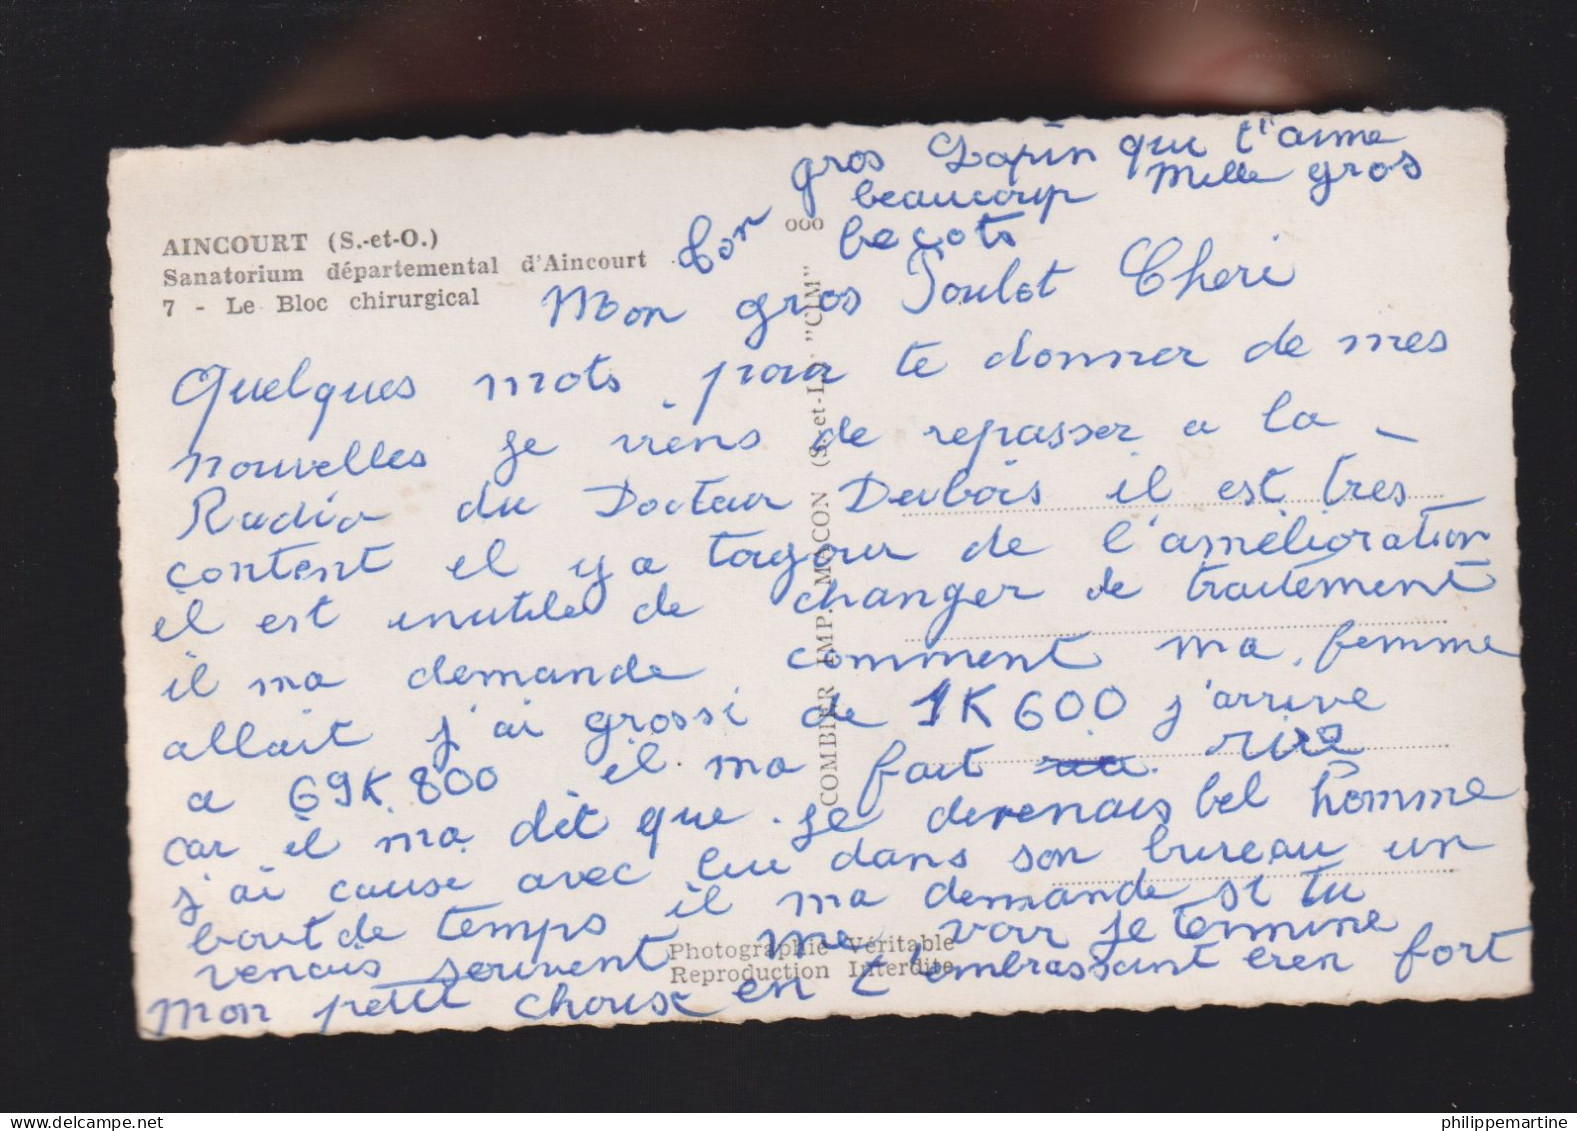 AINCOURT (S.-et-O.)
Sanatorium départemental d'Aincourt
7 - Le Bloc chirurgical
Mon gros Poulet Cheri
Quelques mots pour te donner de mes
nouvelles je viens de repasser a la
Radio du Docteur Dubois il est tres
content il y a toujour de l'amélioration
il est inutile de changer de traitement
il ma demande comment ma femme
allait j'ai grossi de 1K600 j'arrive
a 69K.800 il ma fait rire
car il ma dit que je devenais bel homme
j'ai cause avec lui dans son bureau un
bout de temps il ma demande si tu
venais souvent me voir je termine
mon petit choux en t'embrassant bien fort
Ton
gros Lapin qui t'aime
beaucoup Mille gros
becots
ooo
COMBIER IMP. MACON (S.-et-L.) "CIM"
Photographie Véritable
Reproduction Interdite
philippemartine